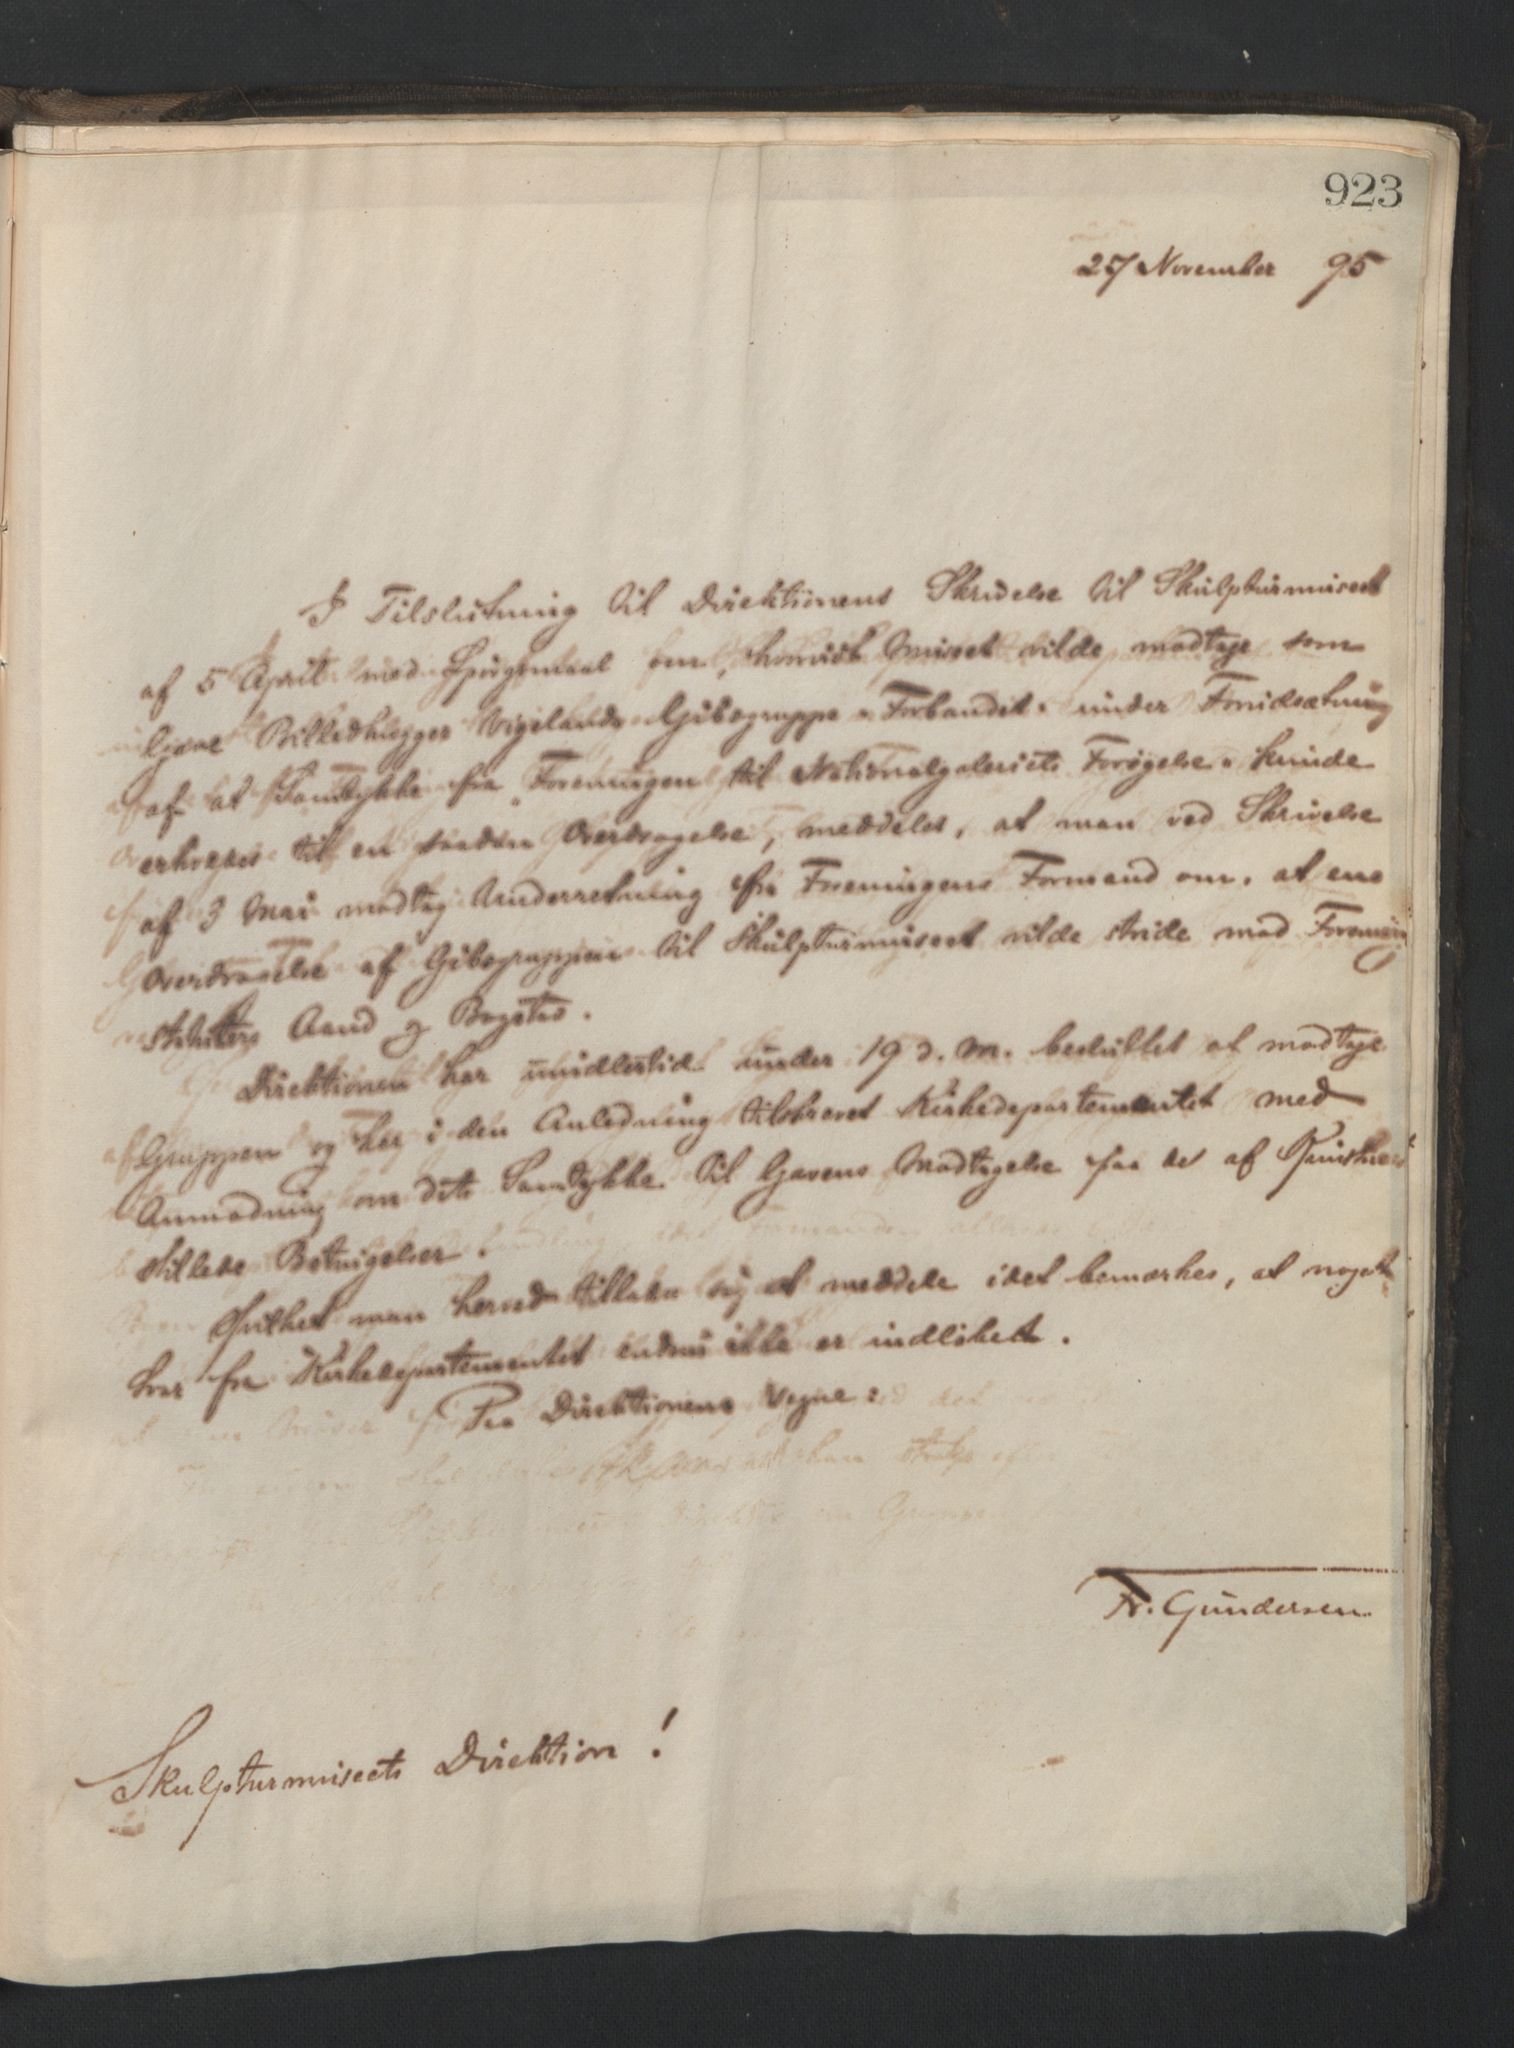 923
27 November 95
I Tilslutning til Direktionens Skrivelse til Skulpturmuseet
af 5 April med Spörgsmaal om, hvorvidt Museet vilde modtage som
Gave Billedhugger Vigelands Gibsgruppe "Forbandet" under Forudsætning
af at Samtykke fra "Foreningen til Nationalgaleriets Forøgelse" kunde
erhverves til en saadan Overdragelse, meddeles, at man ved Skrivelse
af 3 Mai modtog Underretning fra Foreningens Formand om, at en
Overdragelse af Gibsgruppen til Skulpturmuseet vilde stride mod Forenings
statuters Aand og Bogstav.
Direktionen har imidlertid under 19 d. M. besluttet at modtage
Gruppen og har i den Anledning tilskrevet Kirkedepartementet med
Anmodning om dets Samtykke til Gavens Modtagelse paa de af Kunstneren
stillede Betingelser.
Hvilket man herved tillader sig at meddele idet bemærkes, at noget
Svar fra Kirkedepartementet endnu ikke er indløbet.
Paa Direktionens Vegne:
Fr. Gundersen
Skulpturmuseets Direktion!